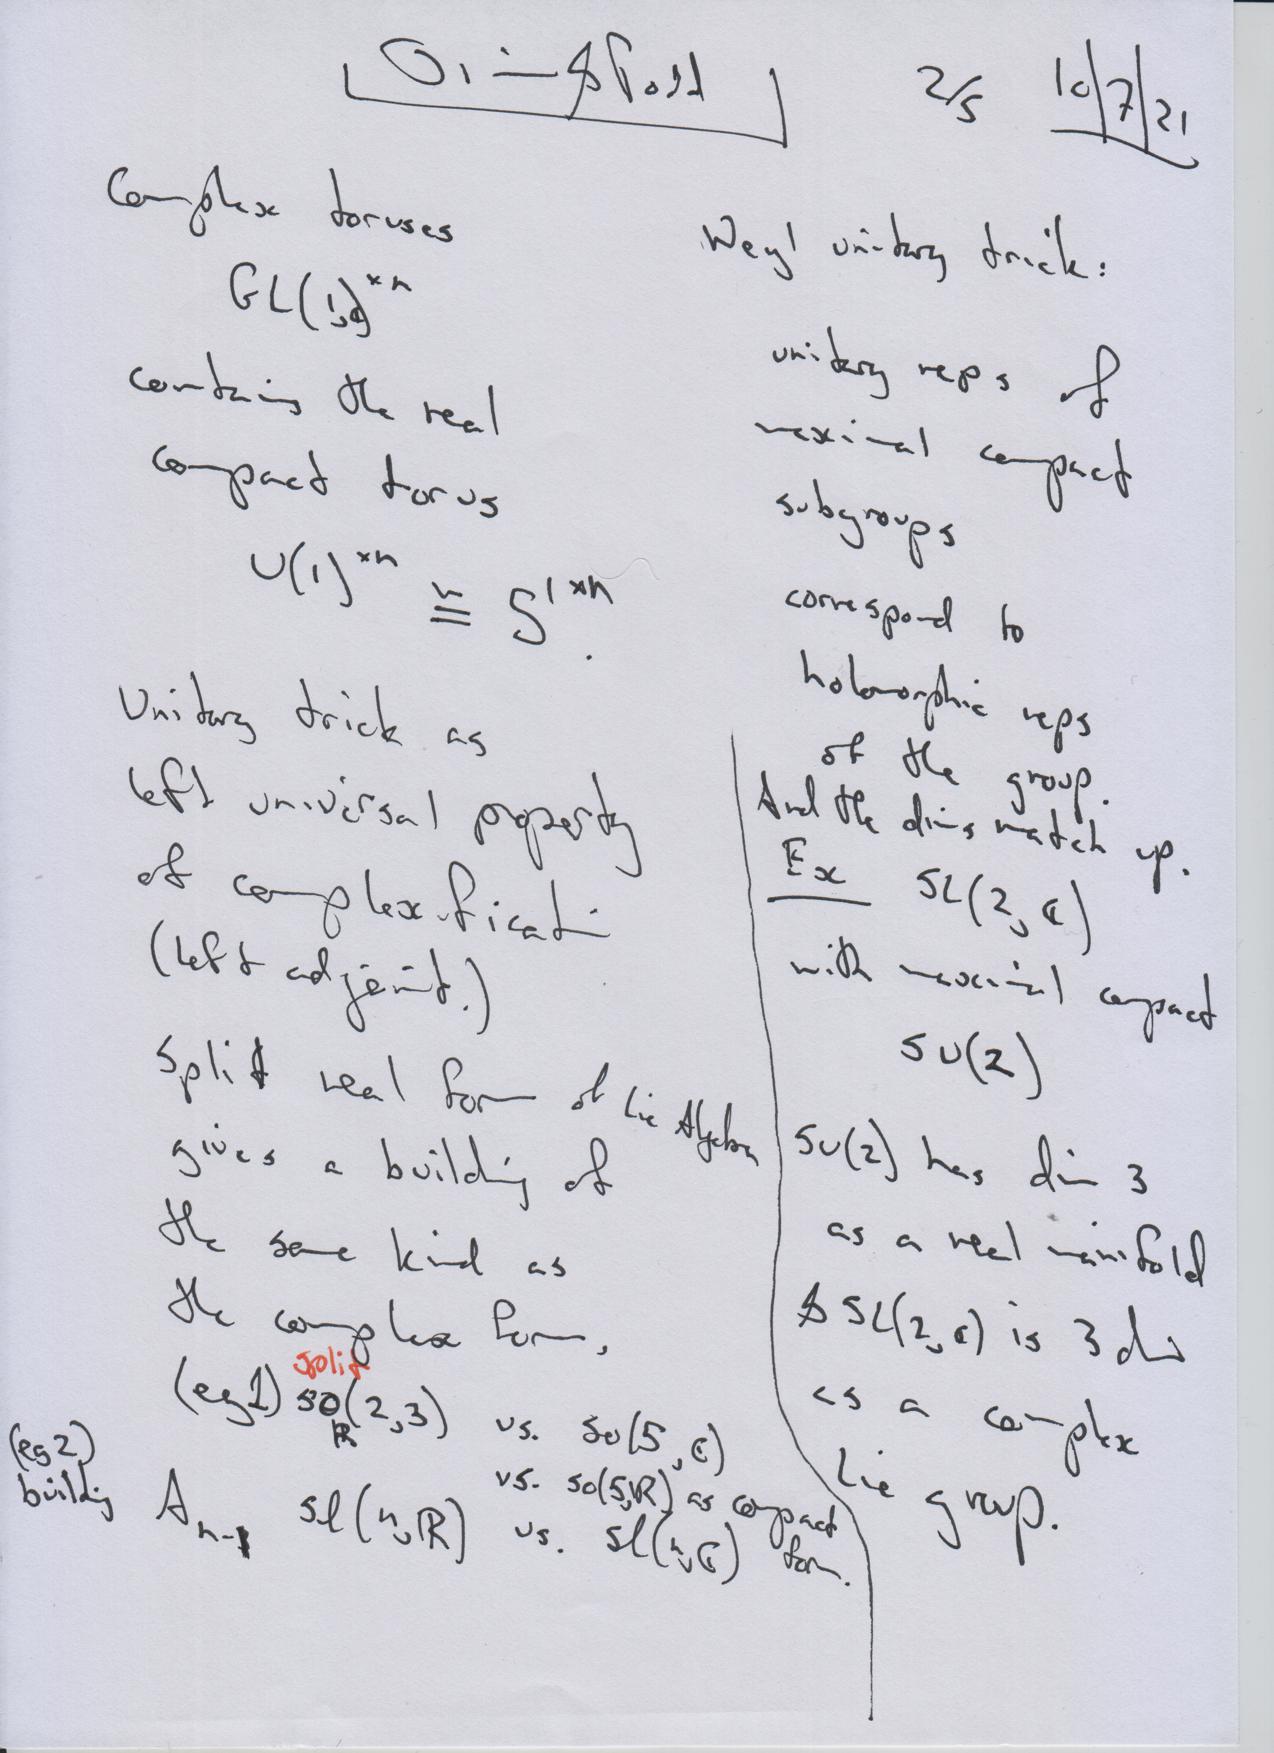 2/5 10/7/21
Complex toruses
GL(1,ℂ)^×n
contains the real
compact torus
U(1)^×n ≅ S^1 ×n.
Unitary trick as
left universal property
of complexification
(left adjoint.)
Split real form of Lie Algebra
gives a building of
the same kind as
the complex form,
split
(eg1) so_ℝ(2,3) vs. so(5,ℂ)
vs. so(5,ℝ) as compact form.
(eg2)
building A_n-1 sl(n,ℝ) vs. sl(n,ℂ)
Weyl unitary trick:
unitary reps of
maximal compact
subgroups
correspond to
holomorphic reps
of the group.
And the dims match up.
Ex SL(2,ℂ)
with maximal compact
SU(2)
SU(2) has dim 3
as a real manifold
& SL(2,ℂ) is 3 dim
as a complex
Lie group.